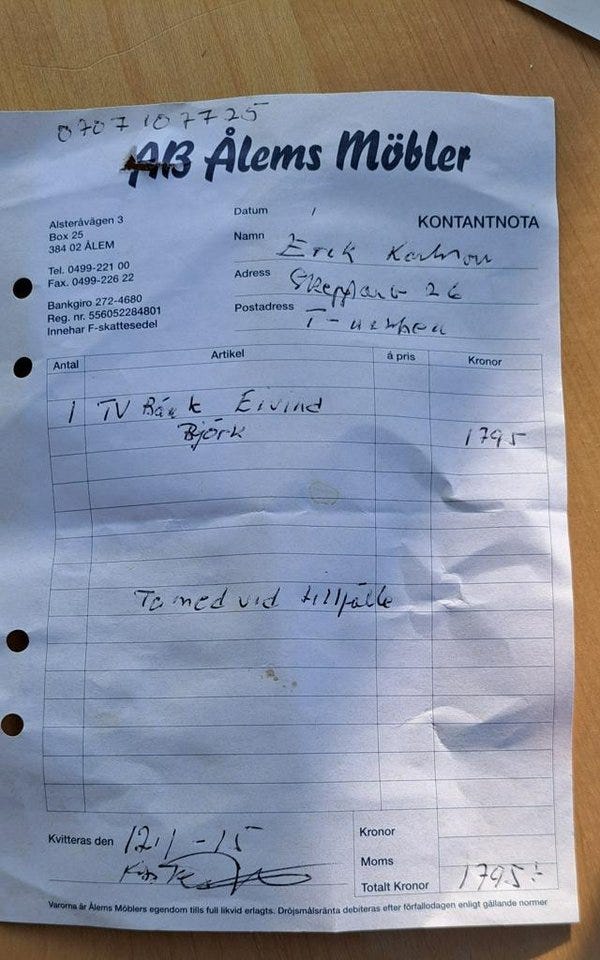 0707107725
AB Ålems Möbler
Alsteråvägen 3
Box 25
384 02 ÅLEM
Tel. 0499-221 00
Fax. 0499-226 22
Bankgiro 272-4680
Reg. nr. 556052284801
Innehar F-skattesedel
KONTANTNOTA
Datum /
Namn Erik Karlsson
Adress 26
Postadress
Antal Artikel à pris Kronor
1 TV Bänk Eivind
Björk 1795
Ta med vid tillfälle
Kvitteras den 12/1 -15
Kronor
Moms
Totalt Kronor 1795:-
Varorna är Ålems Möblers egendom tills full likvid erlagts. Dröjsmålsränta debiteras efter förfallodagen enligt gällande normer